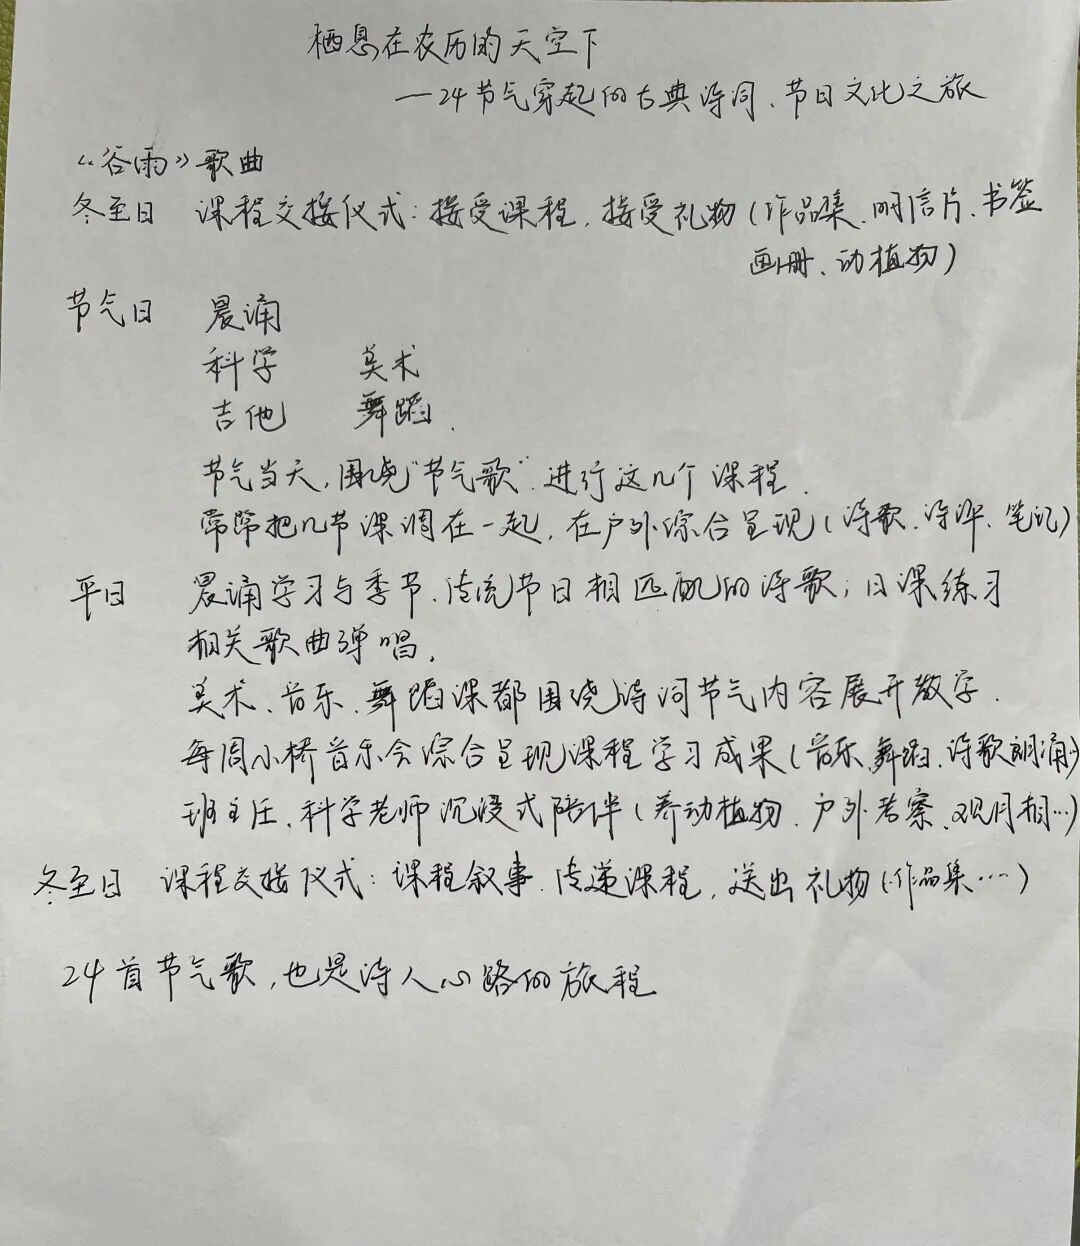 栖息在农历的天空下
—24节气穿起的古典诗词、节日文化之旅
《谷雨》歌曲
冬至日 课程交接仪式：接受课程，接受礼物（作品集、明信片、书签
画册、动植物）
节气日 晨诵
科学 美术
吉他 舞蹈.
节气当天，围绕“节气歌”进行这几个课程.
常常把几节课调在一起，在户外综合呈现（诗歌、诗、笔记）
平日 晨诵学习与季节、传统节日相匹配的诗歌；日课练习
相关歌曲弹唱，
美术、音乐、舞蹈课都围绕诗词节气内容展开教学.
每周小桥音乐会综合呈现课程学习成果（音乐、舞蹈、诗歌朗诵）
班主任、科学老师沉浸式陪伴（养动植物、户外考察、观月相…）
冬至日 课程交接仪式：课程叙事、传递课程，送出礼物（作品集……）
24首节气歌，也是诗人心路的旅程